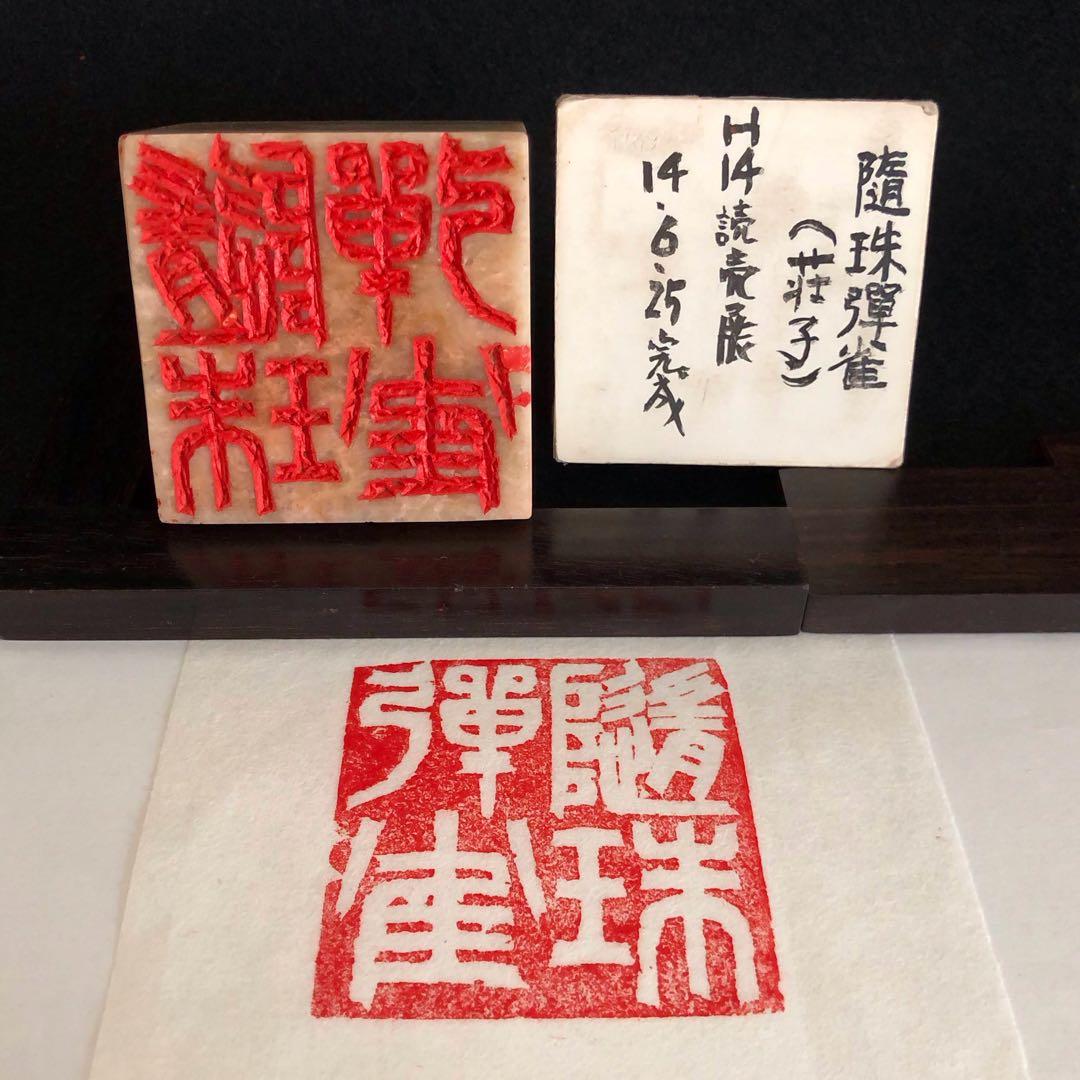 隨珠彈雀
(荘子)
H14読売展
14.6.25完成
隨珠
彈雀